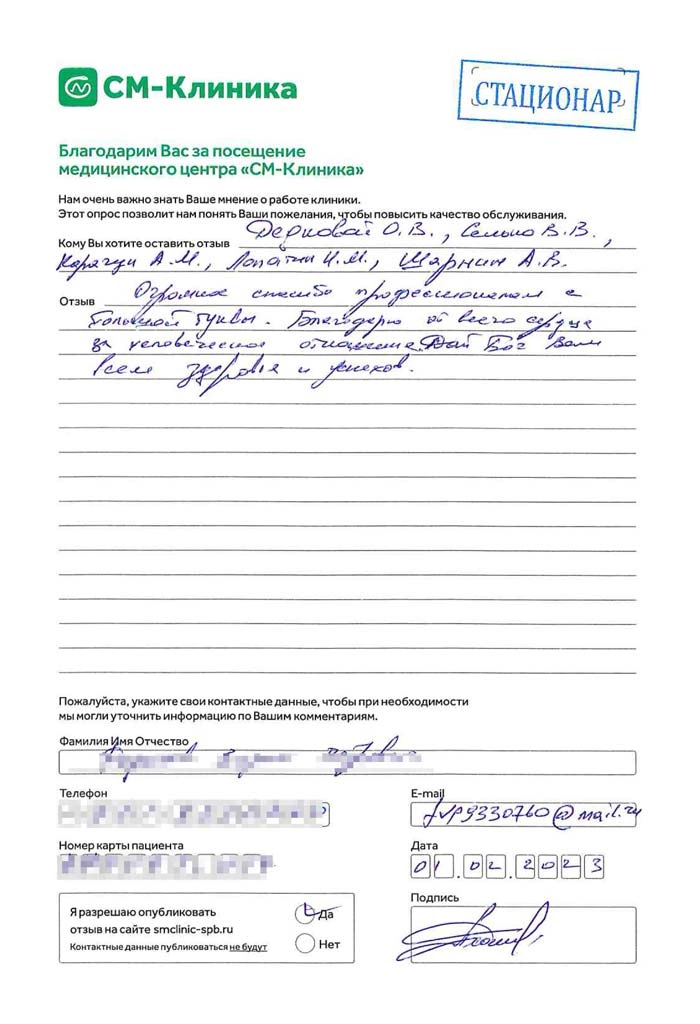 СМ-Клиника
СТАЦИОНАР
Благодарим Вас за посещение
медицинского центра «СМ-Клиника»
Нам очень важно знать Ваше мнение о работе клиники.
Этот опрос позволит нам понять Ваши пожелания, чтобы повысить качество обслуживания.
Кому Вы хотите оставить отзыв Дедковой О.В., Селько В.В.,
Карачун А.М., Лопатин И.М., Шарнин А.В.
Отзыв Огромное спасибо профессионалам с
большой буквы. Благодарю от всего сердца
за человеческое отношение. Дай Бог Вам
всем здоровья и успехов.
Пожалуйста, укажите свои контактные данные, чтобы при необходимости
мы могли уточнить информацию по Вашим комментариям.
Фамилия Имя Отчество
Телефон
E-mail
@mail.ru
Номер карты пациента
Дата
01.02.2023
Я разрешаю опубликовать
отзыв на сайте smclinic-spb.ru
Контактные данные публиковаться не будут
Да
Нет
Подпись